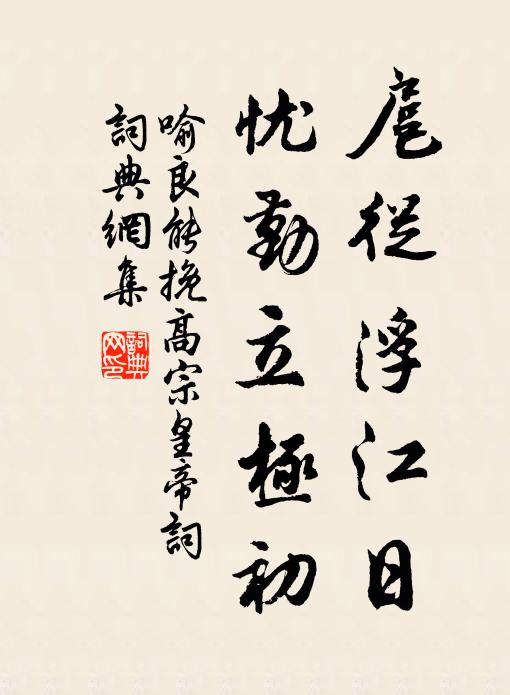 扈從浮江日
忧勤立極初
喻良能挽高宗皇帝詞
詞典網集
詞典网印